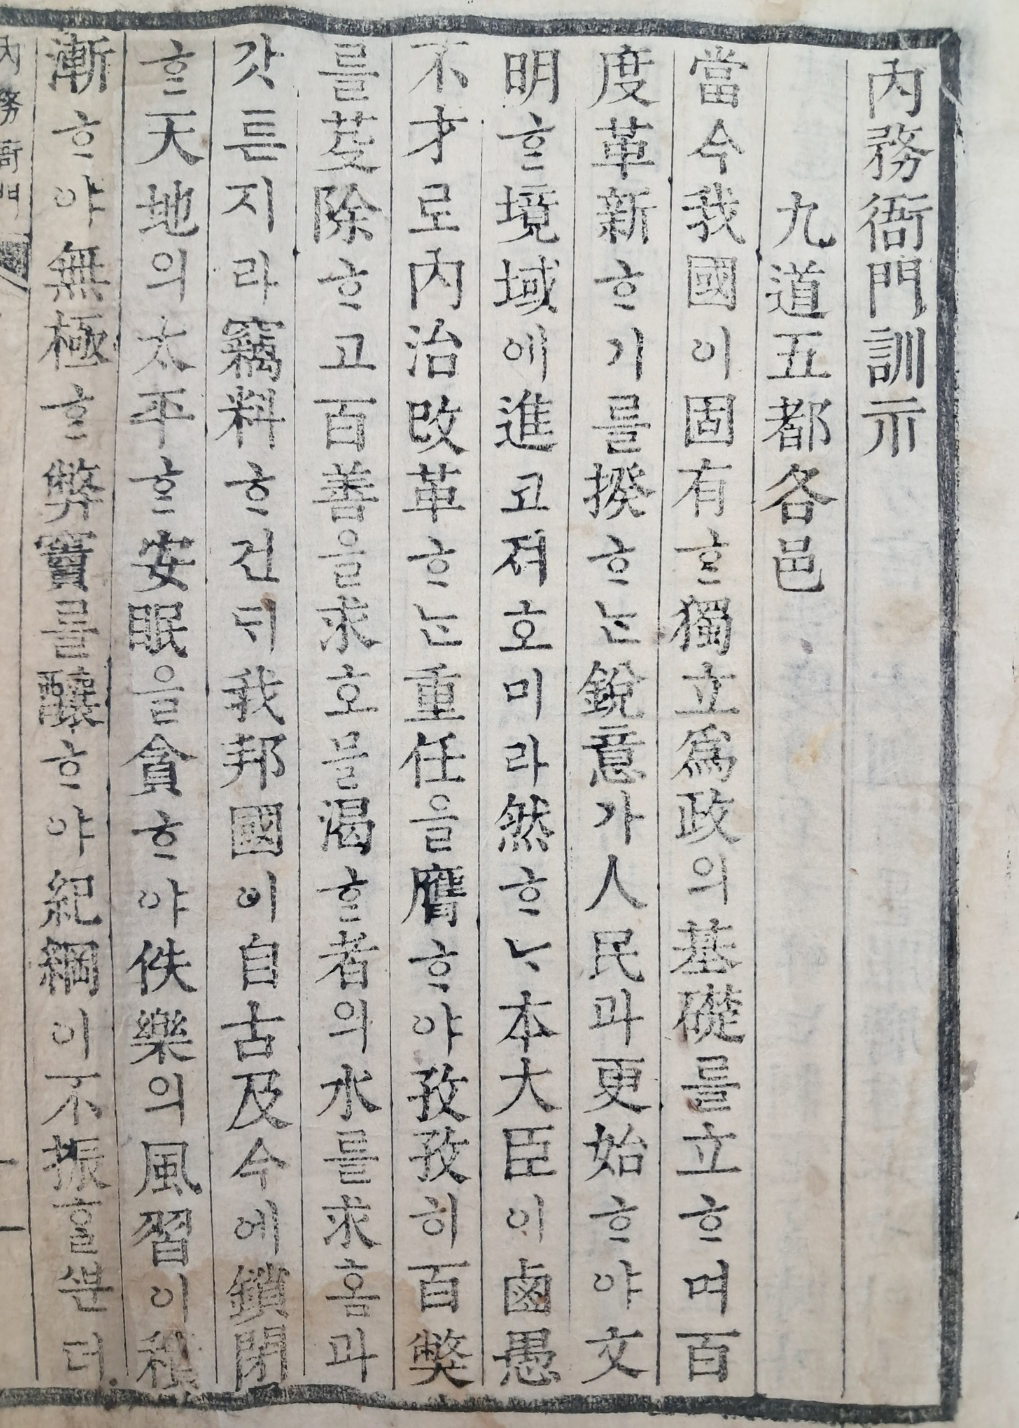 內務衙門訓示
九道五都各邑
當今我國이固有ᄒᆞᆫ獨立爲政의基礎를立ᄒᆞ며百
度革新ᄒᆞ기를揆ᄒᆞᄂᆞᆫ銳意가人民과更始ᄒᆞ야文
明ᄒᆞᆫ境域에進고져호미라然ᄒᆞᄂᆞ本大臣이鹵愚
不才로內治改革ᄒᆞᄂᆞᆫ重任을膺ᄒᆞ야孜孜히百獘
를芟除ᄒᆞ고百善을求호믈渴ᄒᆞᆫ者의水를求홈과
갓튼지라竊料ᄒᆞ건ᄃᆡ我邦國이自古及今에鎖閉
ᄒᆞᆫ天地의太平ᄒᆞᆫ安眠을貪ᄒᆞ야佚樂의風習이積
漸ᄒᆞ야無極ᄒᆞᆫ弊竇를釀ᄒᆞ야紀綱이不振ᄒᆞᆯᄲᅮᆫ더
內務衙門